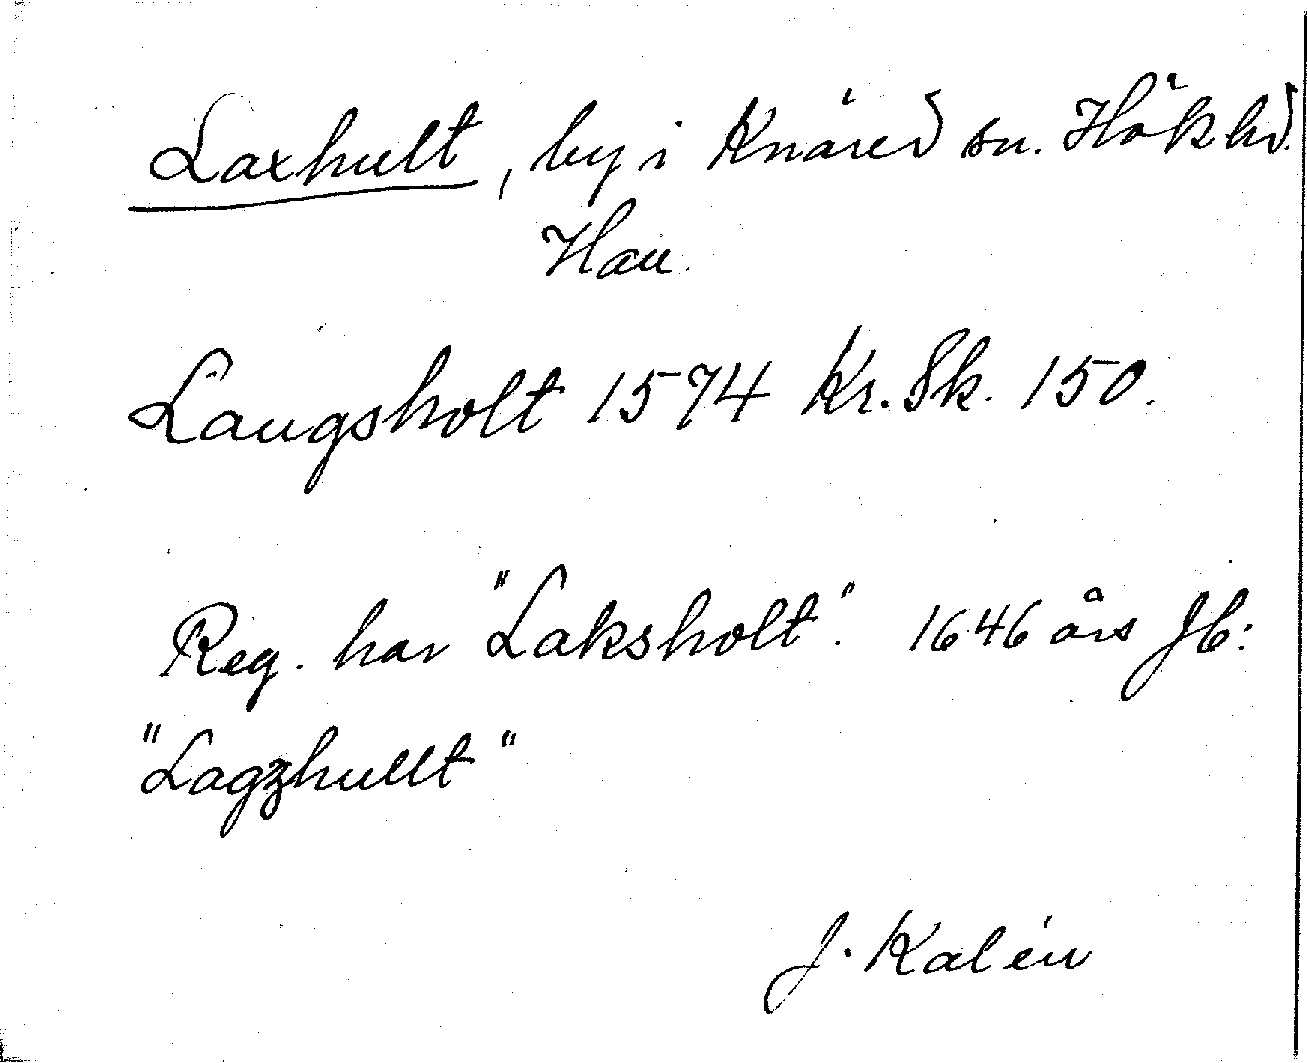 Laxhult, by i Knäred sn. Hök hd.
Hall.
Laugsholt 1574 Kr. Sk. 150.
Reg. har "Laksholt". 1646 års Jb:
"Lagzhullt"
J. Kalén